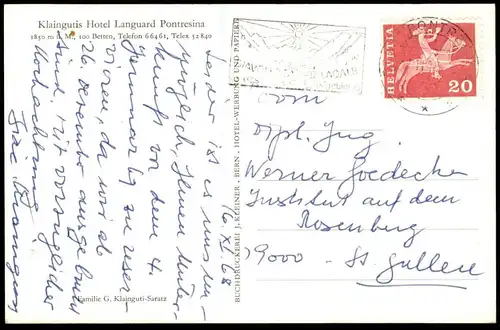 Klaingutis Hotel Languard Pontresina
1850 m ü. M., 100 Betten, Telefon 66461, Telex 52 840
Leider ist es uns un-
möglich Ihnen Unter-
kunft vor dem 4.
Januar 69 zu reser-
vieren, da wir ab
26 Dezember ausgebucht
sind. Mit vorzüglicher
Hochachtung
Frau Klainguti
Familie G. Klainguti-Saratz
16. XI. 68
BUCHDRUCKEREI J. KLEINER, BERN, HOTEL-WERBUNG UND PAPIERE
HELVETIA
20
PONTRE
Dipl. Ing.
Werner Goedecke
Institut auf dem
Rosenberg
9000 - St. Gallen